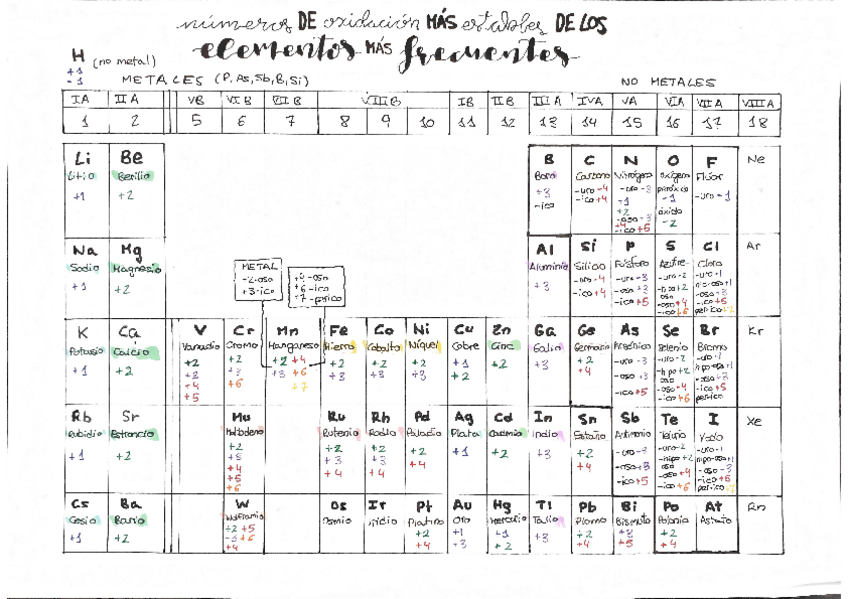 números DE oxidación MÁS estables DE LOS
elementos MÁS frecuentes
H (no metal)
+1
-1
METALES (P, As, Sb, B, Si)
NO METALES
IA IIA VB VIB VIIB VIIIB IB IIB IIIA IVA VA VIA VIIA VIIIA
1 2 5 6 7 8 9 10 11 12 13 14 15 16 17 18
Li Be B C N O F Ne
Litio Berilio Boro Carbono Nitrógeno oxígeno Flúor
+1 +2 +3 -uro -4 -uro -3 peróxido -uro -1
-ico -ico +4 +1 -1
+2 óxido
-oso -3 -2
+4
-ico +5
Na Mg Al Si P S Cl Ar
Sodio Magnesio Aluminio Silicio Fósforo Azufre Cloro
+1 +2 +3 -uro -4 -uro -3 -uro -2 -uro -1
-ico +4 -oso +3 -hipo +2
-ico +5 oso
-oso +4
-ico +6
METAL
-2-oso
+3-ico
+4-oso
+6-ico
+7-périco
K Ca V Cr Mn Fe Co Ni Cu Zn Ga Ge As Se Br Kr
Potasio Calcio Vanadio Cromo Manganeso Hierro Cobalto Níquel Cobre Cinc Galio Germanio Arsénico Selenio Bromo
+1 +2 +2 +2 +2 +4 +2 +2 +2 +1 +2 +3 +2 -uro -3 -uro -2 -uro -1
+3 +3 +3 +6 +3 +3 +3 +2 +4 -oso +3 -hipo +2
+4 +6 +7 -ico +5 oso
+5 -oso +4
-ico +6
Rb Sr Mu Ru Rh Pd Ag Cd In Sn Sb Te I Xe
Rubidio Estroncio Molibdeno Rutenio Rodio Paladio Plata Cadmio Indio Estaño Antimonio Teluro Yodo
+1 +2 +2 +2 +2 +2 +1 +2 +3 +2 -uro -3 -uro -2 -uro -1
+3 +3 +3 +4 +4 -oso +3 -hipo +2
+4 +4 +4 -ico +5 oso
+5 -oso +4
+6 -ico +6
Cs Ba W Os Ir Pt Au Hg Tl Pb Bi Po At Rn
Cesio Bario Wolframio Osmio Iridio Platino Oro Mercurio Talio Plomo Bismuto Polonio Astato
+1 +2 +2 +5 +2 +1 +1 +3 +2 +3 +2
+6 +4 +3 +2 +4 +5 +4
+4